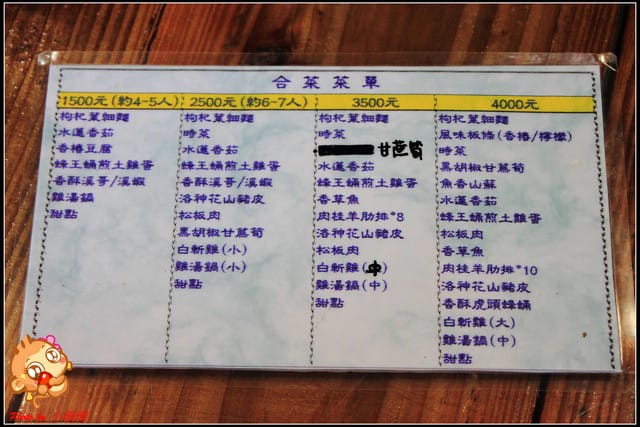 合菜菜單
1500元(約4-5人)
枸杞葉細麵
水蓮香茹
香椿豆腐
蜂王蛹煎土雞蛋
香酥溪哥/溪蝦
雞湯鍋
甜點
2500元(約6-7人)
枸杞葉細麵
時菜
水蓮香茹
蜂王蛹煎土雞蛋
香酥溪哥/溪蝦
洛神花山豬皮
松板肉
黑胡椒甘蔗筍
白斬雞(小)
雞湯鍋(小)
甜點
3500元
枸杞葉細麵
時菜
甘蔗筍
水蓮香茹
蜂王蛹煎土雞蛋
香草魚
肉桂羊肋排*8
洛神花山豬皮
松板肉
白斬雞(中)
雞湯鍋(中)
甜點
4000元
枸杞葉細麵
風味板條(香椿/檸檬)
時菜
黑胡椒甘蔗筍
魚香山蘇
水蓮香茹
蜂王蛹煎土雞蛋
松板肉
香草魚
肉桂羊肋排*10
洛神花山豬皮
香酥虎頭蜂蛹
白斬雞(大)
雞湯鍋(中)
甜點